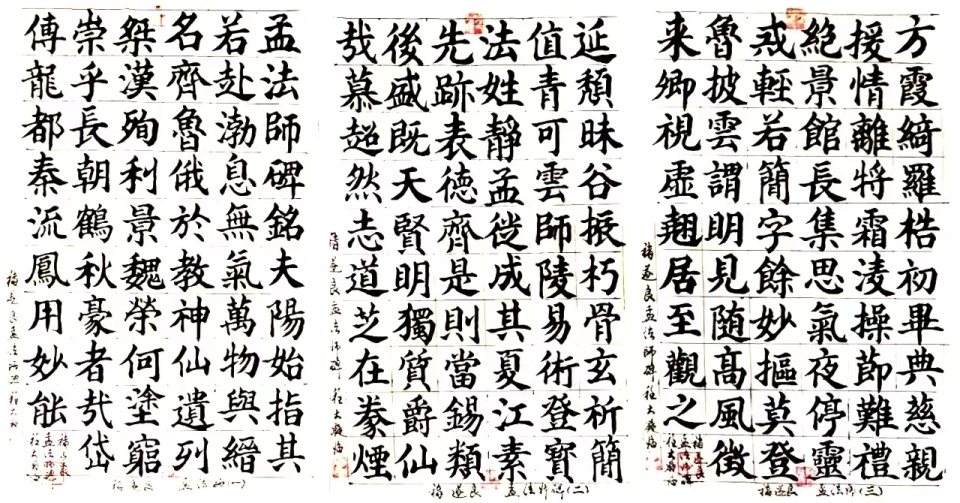 孟法師碑銘夫陽始指其
若赴渤息無氣萬物與縉
名齊魯俄於教神仙遺列
桀漢殉利景魏榮何塗窮
崇乎長朝鶴秋豪者岱
傅龍都秦流鳳用妙能
延頹昧谷振朽骨玄祈簡
值青可雲師陵易術登寶
法姓靜孟從成其夏江素
先跡表德齊是則當錫類
後盛既天賢明獨質爵仙
哉慕超然志道芝在豢煙
褚遂良孟法師碑
方霞綺羅梏初畢典慈親
援情離將霜淩操節難禮
絕景館長集思氣夜停靈
戒輕若簡字餘妙摳莫登
魯披雲謂明見随高風徵
来卿視虛翹居至觀之
褚遂良孟法師碑